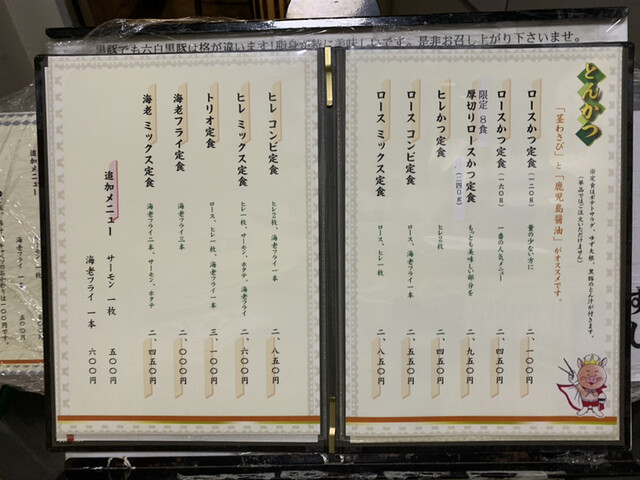 黒豚でも六白黒豚は格が違います!脂身が特に美味しいです。是非お召し上がり下さいませ。
とんかつ
※定食はポテトサラダ、ゆず大根、黒豚のとん汁が付きます。
(単品ではご注文いただけません)
「茎わさび」と「鹿児島醤油」がオススメです。
ロースかつ定食(一二〇g) 量の少ない方に 二、一〇〇円
ロースかつ定食(一六〇g) 一番の人気メニュー 二、四五〇円
限定 8食
厚切りロースかつ定食(二四〇g) もっとも美味しい部分を 二、九五〇円
ヒレかつ定食 ヒレ2枚 二、四五〇円
ロース コンビ定食 ロース、海老フライ一本 二、五五〇円
ロース ミックス定食 ロース、ヒレ一枚 二、八五〇円
ヒレ コンビ定食 ヒレ2枚、海老フライ一本 二、八五〇円
ヒレ ミックス定食 ヒレ一枚、サーモン、ホタテ、海老フライ 二、六〇〇円
トリオ定食 ロース、ヒレ一枚、海老フライ一本 三、一〇〇円
海老フライ定食 海老フライ三本 二、〇〇〇円
海老 ミックス定食 海老フライ二本、サーモン、ホタテ 二、四五〇円
追加メニュー サーモン 一枚 五〇〇円
海老フライ 一本 六〇〇円
追加メニュー